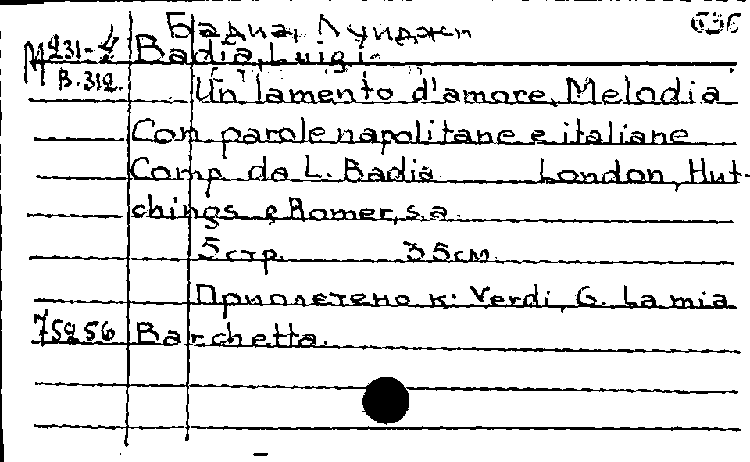 Бадиа, Луиджи
М 231-4 Badia, Luigi.
В.312. Un lamento d'amore. Melodia
Con parole napolitane e italiane
Comp. da L. Badia London, Hut-
chings e Romer, s.a.
5 стр. 35 см.
Приплетено к: Verdi, G. La mia
75256 Barchetta.